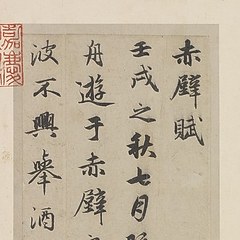 赤壁賦
壬戌之秋七月
舟遊于赤壁之
波不興舉酒